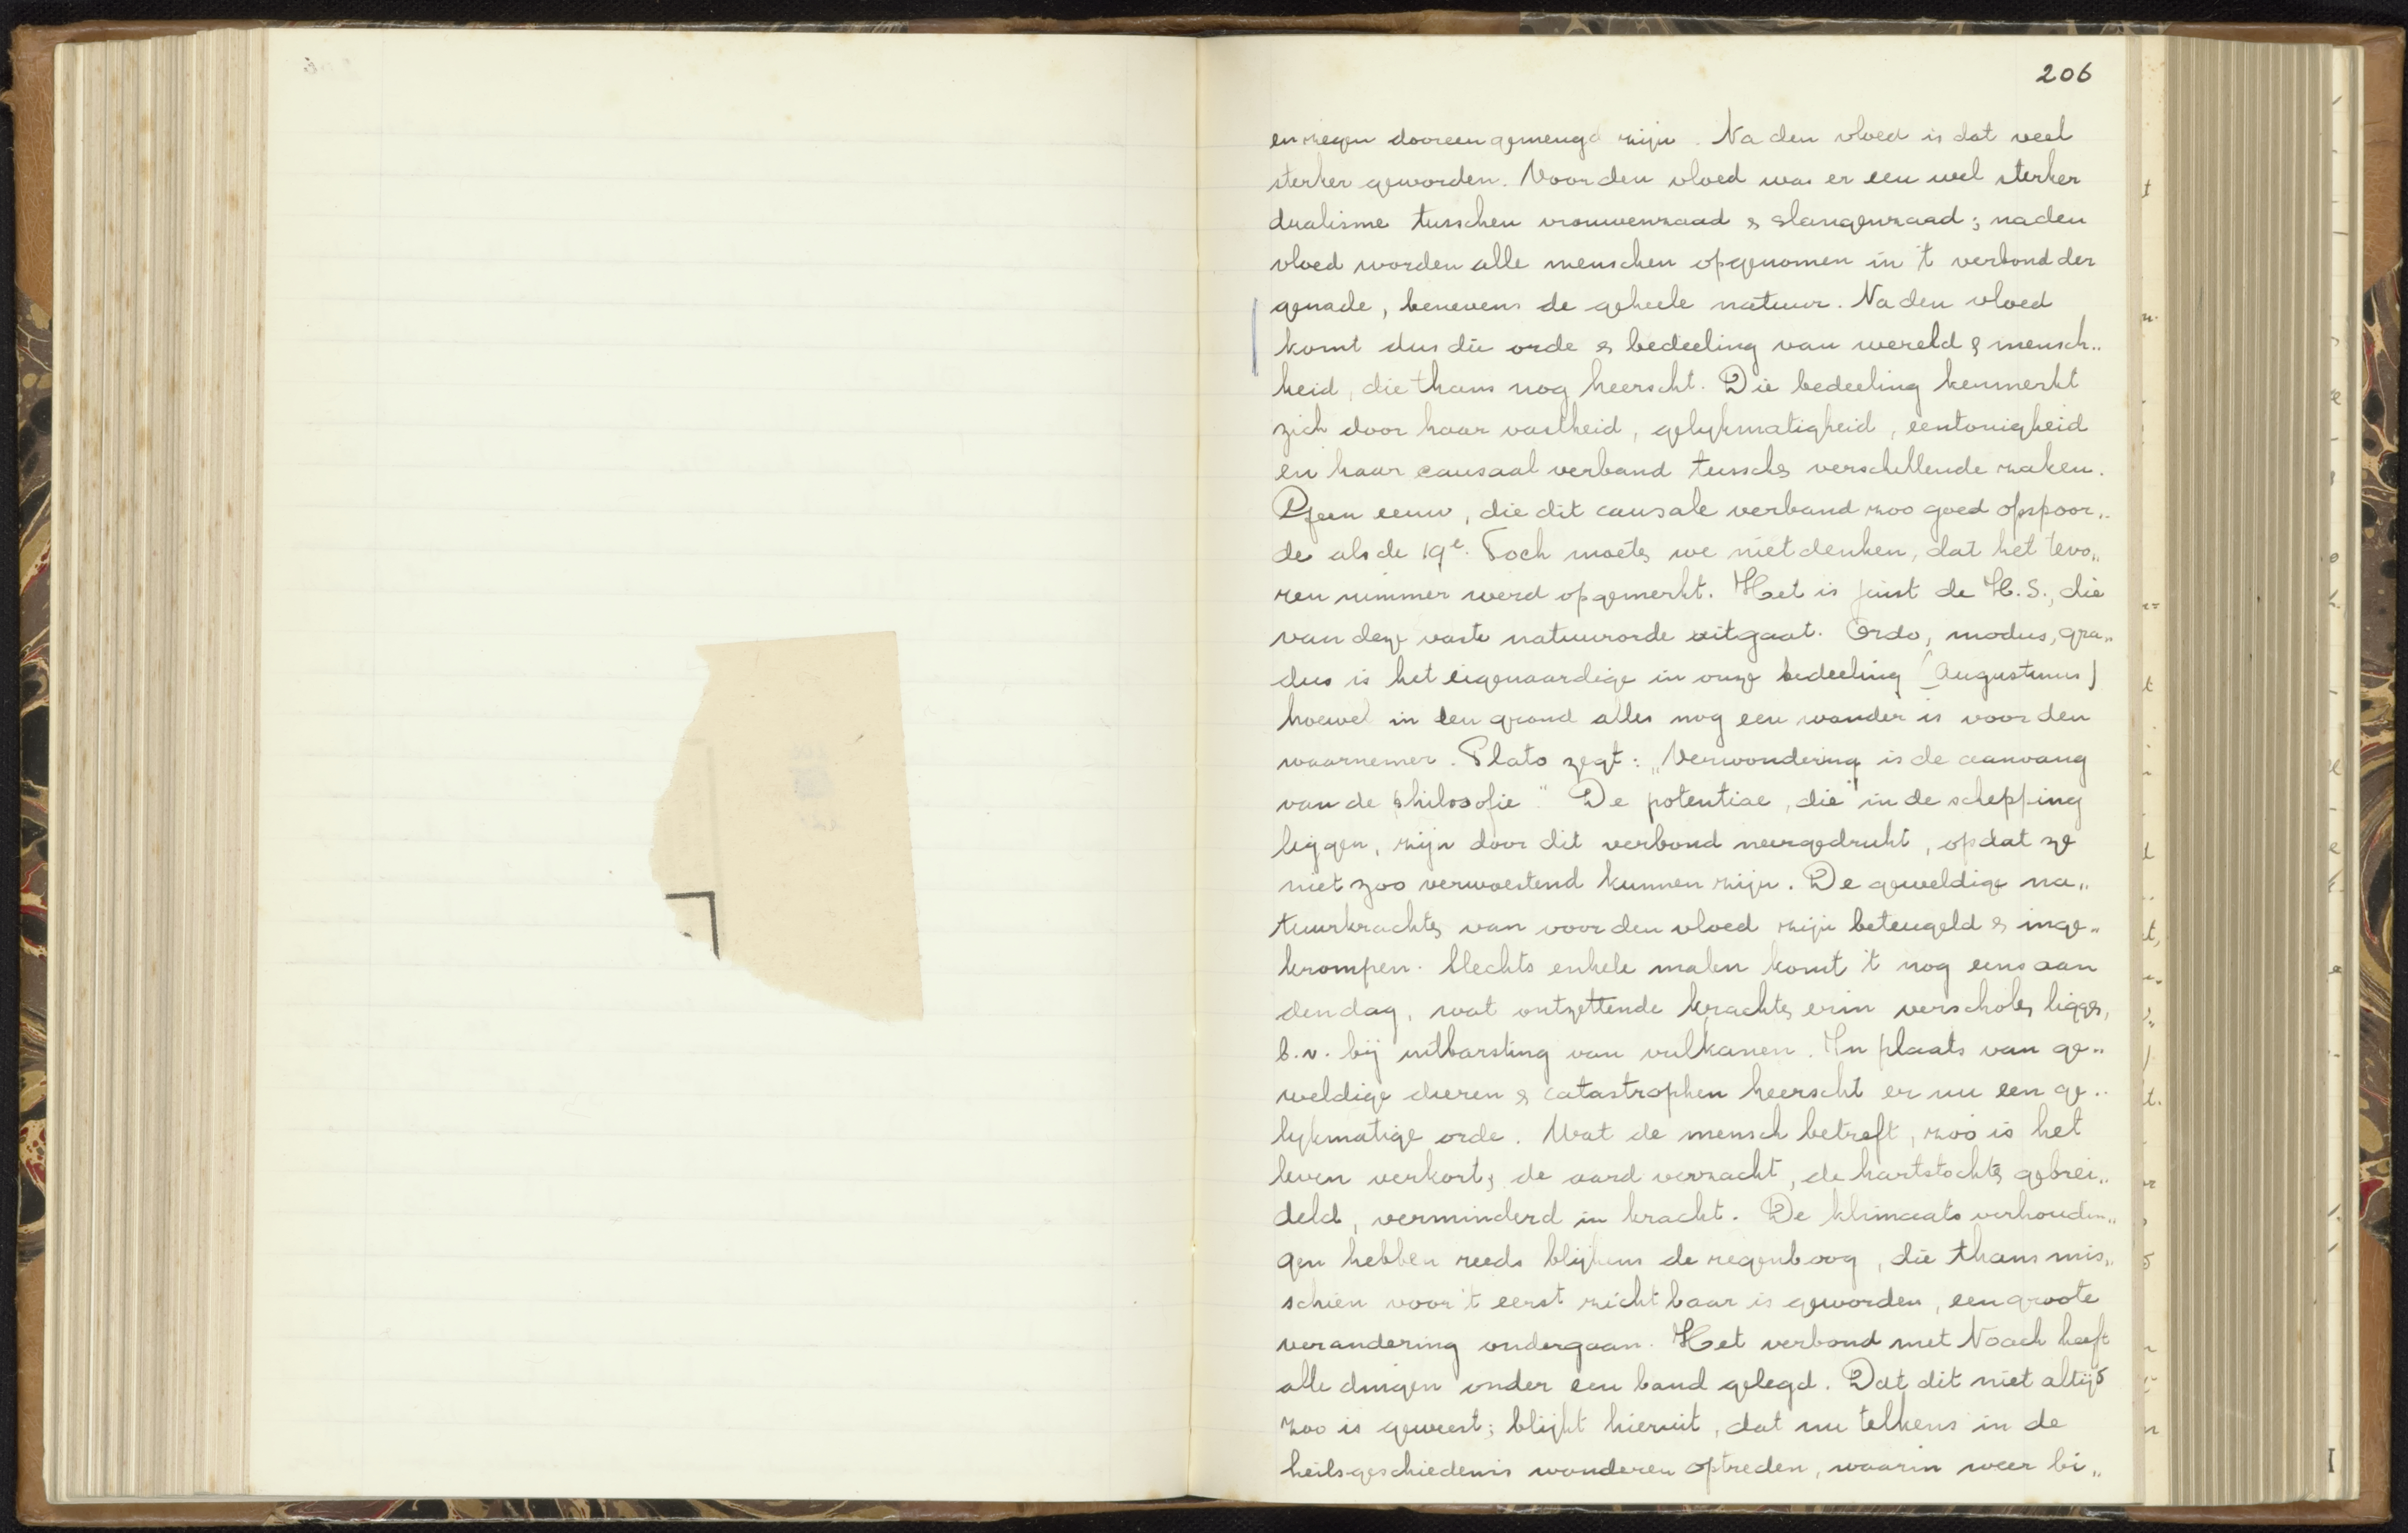 206
en zegen dooreengemengd zijn. Na den vloed is dat veel
sterker geworden. Voor den vloed was er een veel sterker
dualisme tusschen vrouwenzaad & slangenzaad; na den
vloed worden alle menschen opgenomen in 't verbond der
genade, benevens de geheele natuur. Na den vloed
komt dus die orde & bedeeling van wereld & mensch„
heid, die thans nog heerscht. Die bedeeling kenmerkt
zich door haar vastheid, gelykmatigheid, eentonigheid
en haar causaal verband tussche verschillende zaken.
Geen eeuw, die dit causale verband zoo goed opspoor„
de als de 19e. Toch moete we niet denken, dat het tevo„
ren nimmer werd opgemerkt. Het is juist de H.S., die
van deze vaste natuurorde uitgaat. Ordo, modus, gra„
dus is het eigenaardige in onze bedeeling (Augustinus)
hoewel in den grond alles nog een wonder is voor den
waarnemer. Plato zegt: „Verwondering is de aanvang
van de philosofie." De potentiae, die in de schepping
liggen, zijn door dit verbond neergedrukt, opdat ze
niet zoo verwoestend kunnen zijn. De geweldige na„
tuurkrachte van voor den vloed zijn beteugeld & inge„
krompen. Slechts enkele malen komt 't nog eens aan
den dag, wat ontzettende krachte erin verschole ligge,
b.v. bij uitbarsting van vulkanen. In plaats van ge„
weldige dieren & catastrophen heerscht er nu een ge„
lykmatige orde. Wat de mensch betreft, zoo is het
leven verkort, de aard verzacht, de hartstochte gebrei„
deld, verminderd in kracht. De klimaatsverhoudin„
gen hebben reeds blijkens de regenboog, die thans mis„
schien voor 't eerst zichtbaar is geworden, een groote
verandering ondergaan. Het verbond met Noach heeft
alle dingen onder een band gelegd. Dat dit niet altijd
zoo is geweest; blijkt hieruit, dat nu telkens in de
heilsgeschiedenis wonderen optreden, waarin weer bi„